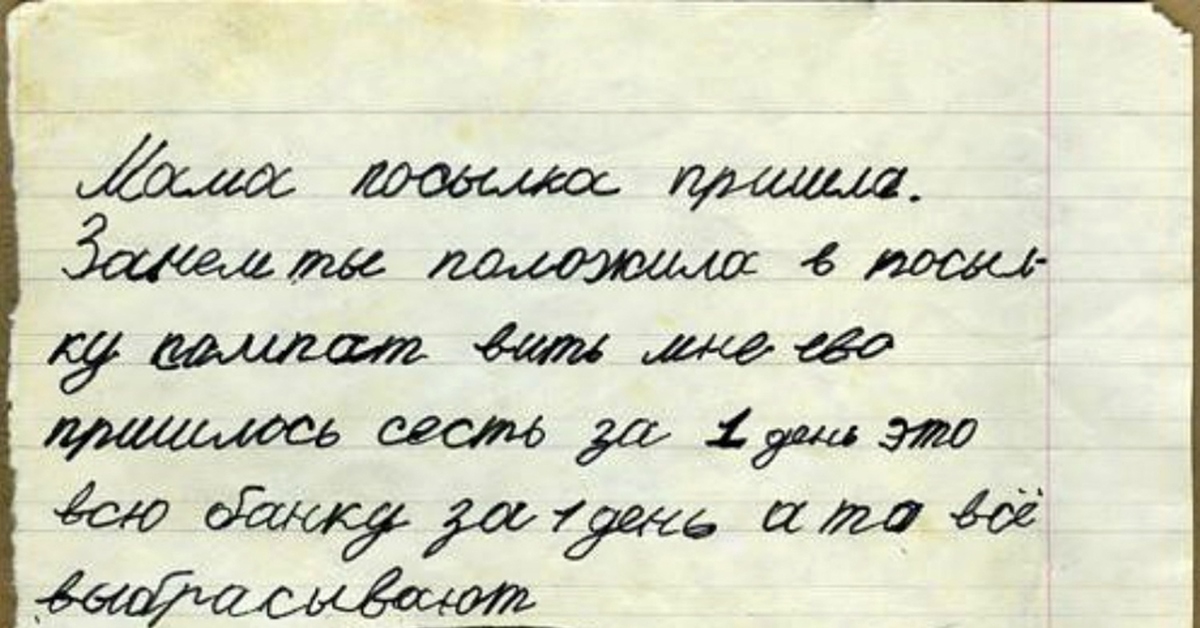 Мама посылка пришла.
Зачем ты положила в посыл-
ку компот вить мне ево
пришлось сесть за 1 день это
всю банку за 1 день а то всё
выбрасывают